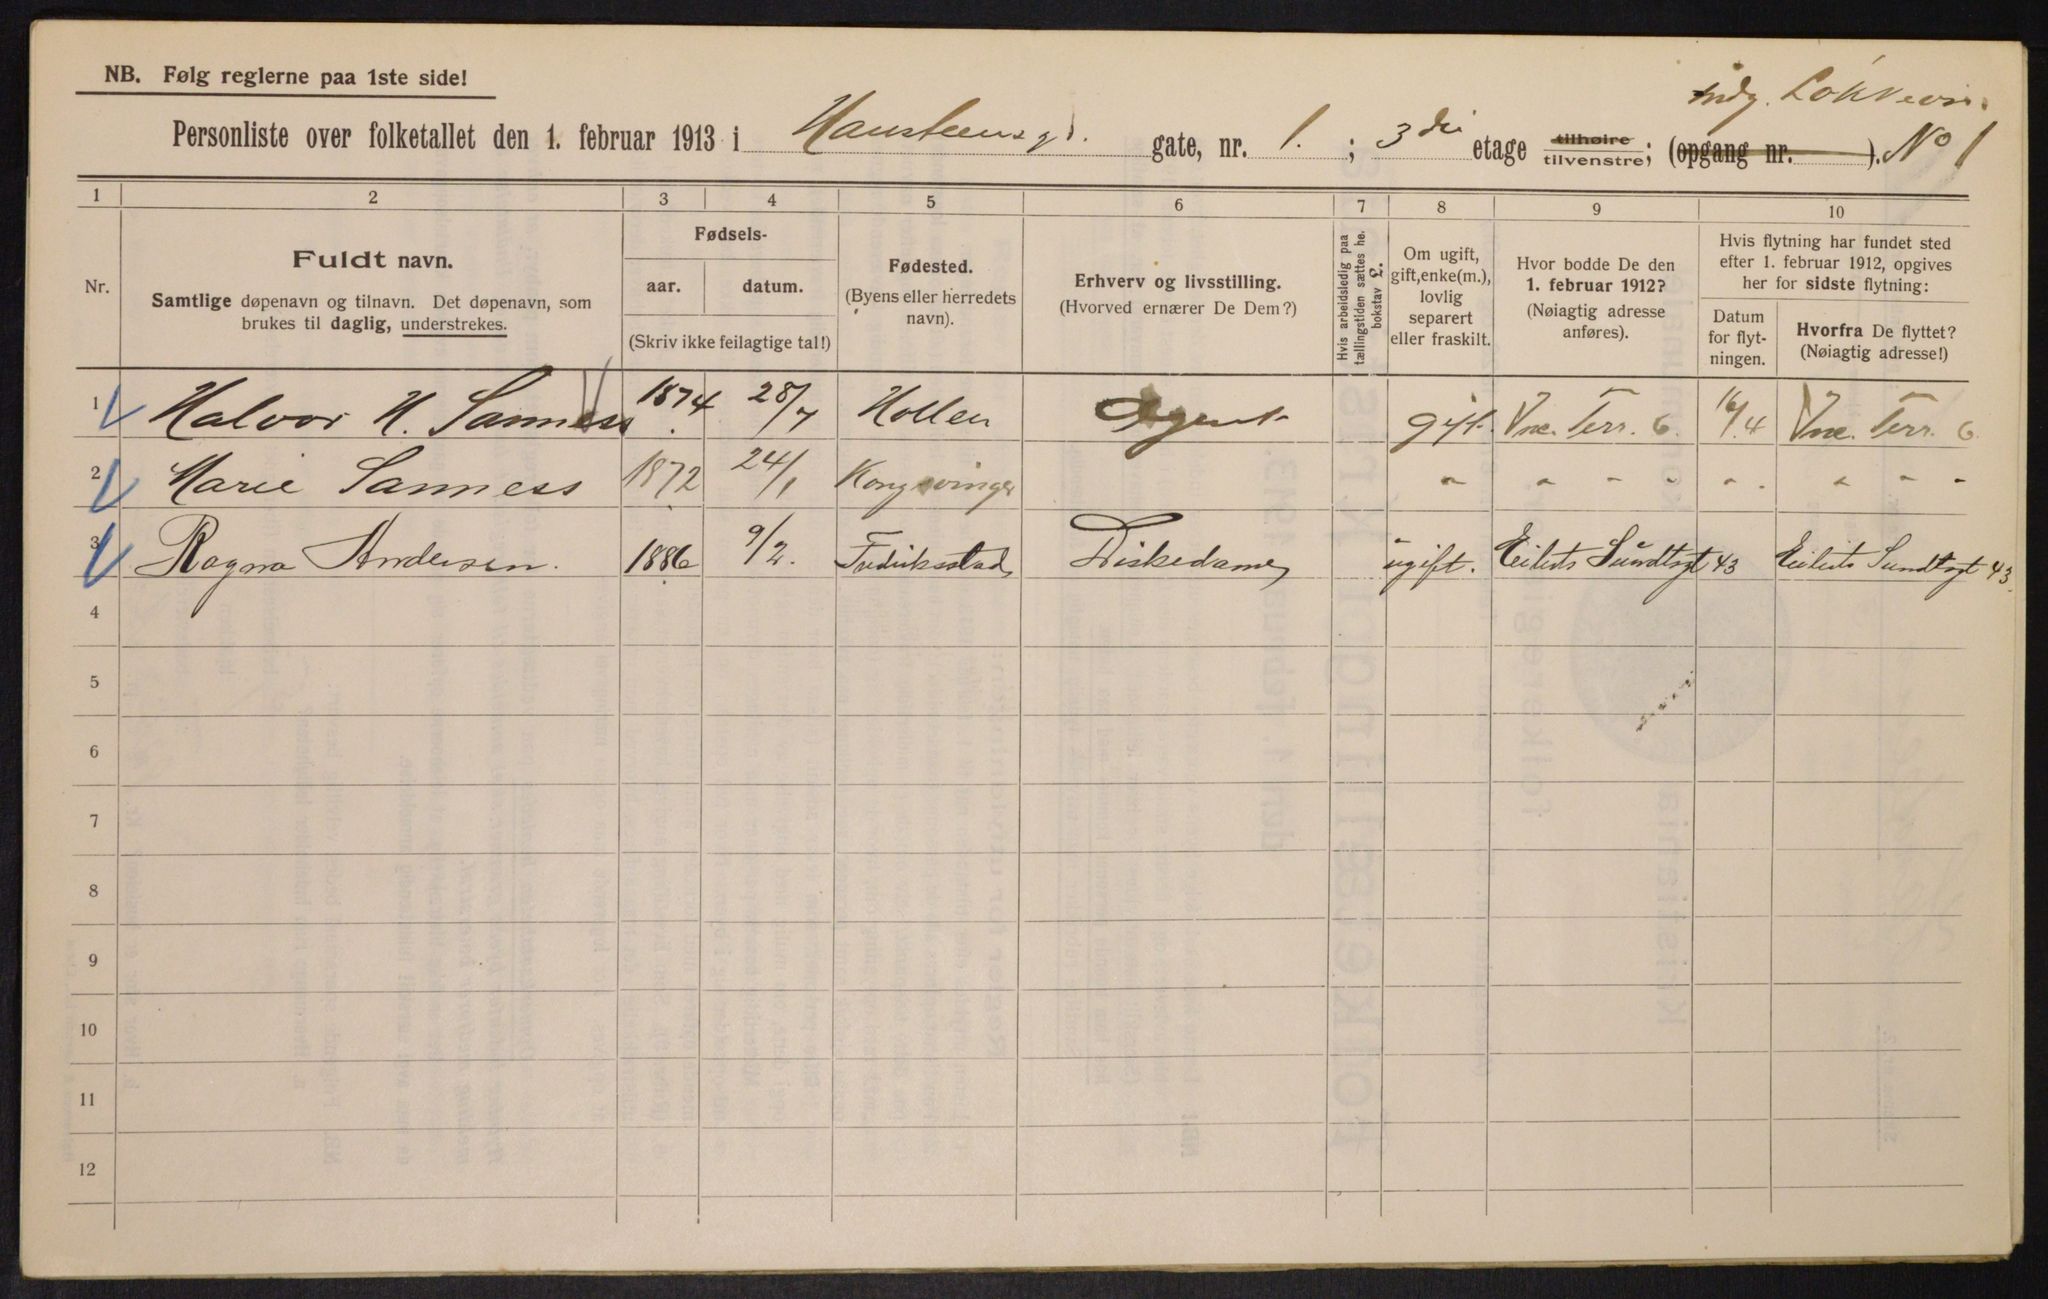 NB. Følg reglerne paa 1ste side!
indg. Løkkevn.
Personliste over folketallet den 1. februar 1913 i Hansteensgt. gate, nr. 1. ; 3die etage tilhøire tilvenstre; (opgang nr. ). No 1
1 2 3 4 5 6 7 8 9 10
Nr.
Fuldt navn.
Samtlige døpenavn og tilnavn. Det døpenavn, som
brukes til daglig, understrekes.
Fødsels-
aar. datum.
(Skriv ikke feilagtige tal!)
Fødested.
(Byens eller herredets
navn).
Erhverv og livsstilling.
(Hvorved ernærer De Dem?)
Hvis arbeidsledig paa
tællingstiden sættes he.
bokstav L.
Om ugift,
gift, enke(m.),
lovlig
separert
eller fraskilt.
Hvor bodde De den
1. februar 1912?
(Nøiagtig adresse
anføres).
Hvis flytning har fundet sted
efter 1. februar 1912, opgives
her for sidste flytning:
Datum
for flyt-
ningen.
Hvorfra De flyttet?
(Nøiagtig adresse!)
1 Halvor H. Sanness 1874 28/7 Hollen Agent gift. Vne. Terr. 6. 16/4 Vne. Terr. 6
2 Marie Sanness 1872 24/1 Kongsvinger " " " " " " " " " "
3 Ragna Andersen. 1886 9/2. Fredriksstad Diskedame ugift. Eilerts Sundtsgt 43 Eilerts Sundtsgt 43
4
5
6
7
8
9
10
11
12